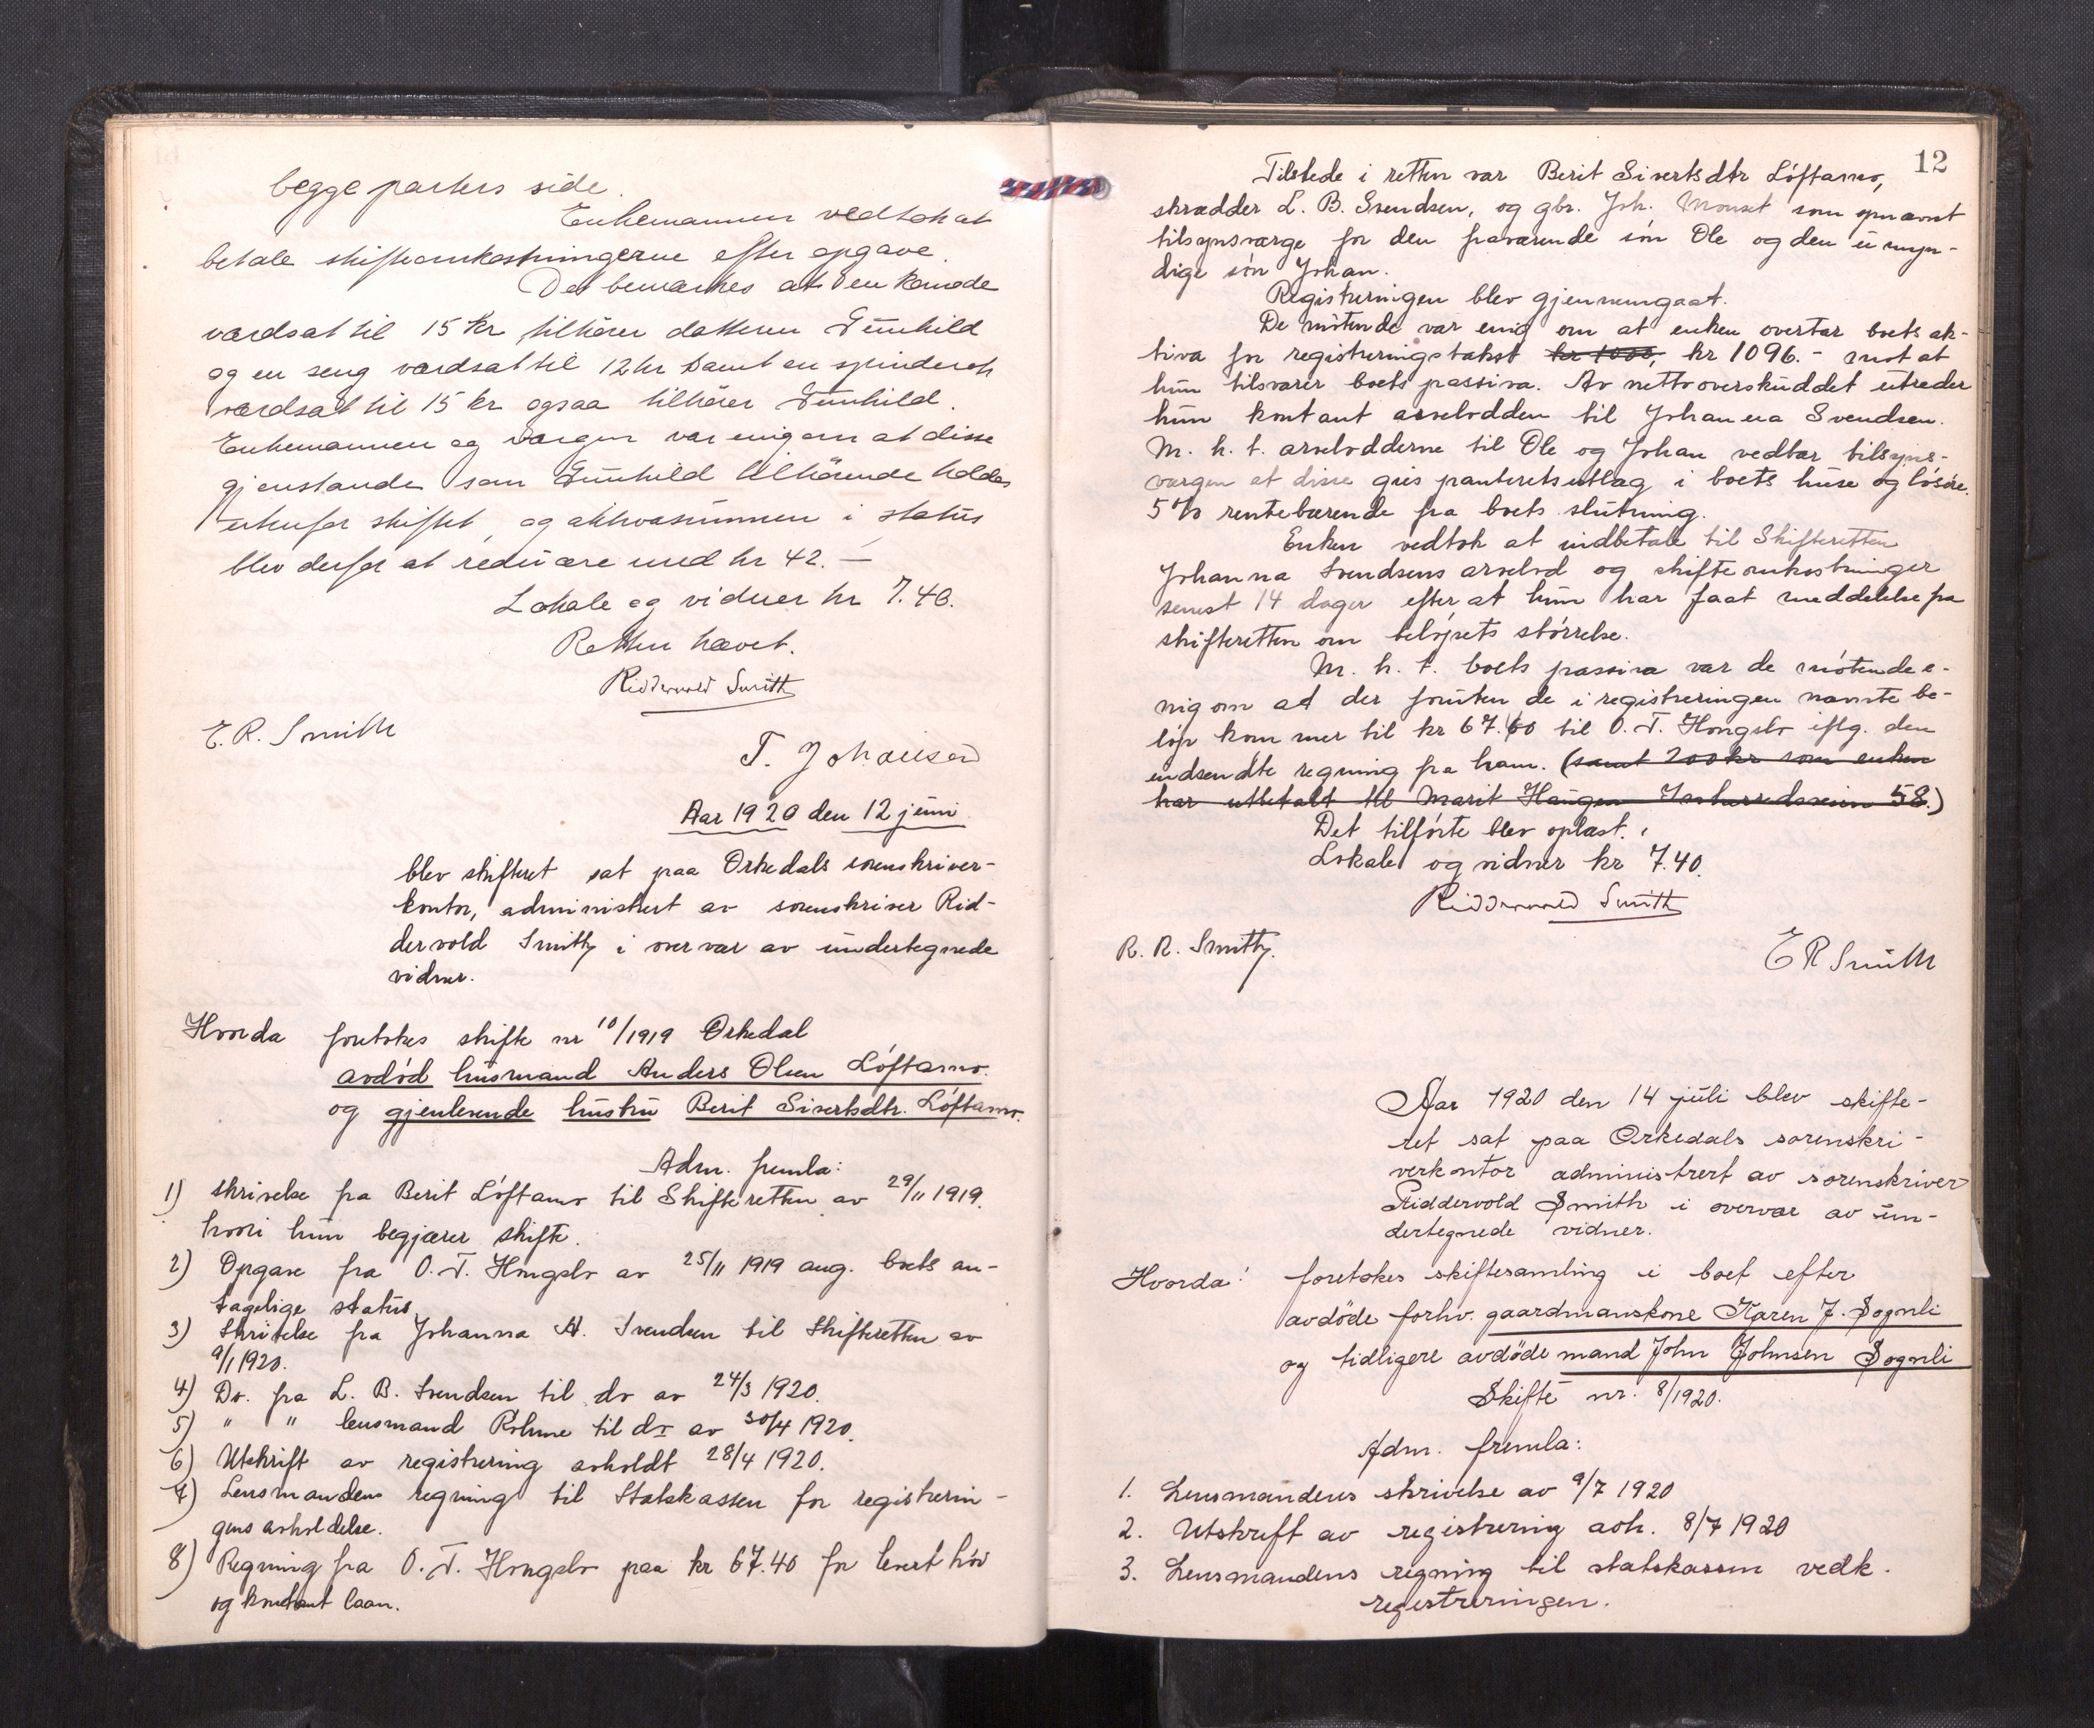 begge parters side.
Enkemannen vedtok at
betale skifteomkostningerne efter opgave.
Det bemærkes at en komode
værdsat til 15 kr tilhører datteren Gunhild
og en seng værdsat til 12 kr samt en spinderok
værdsat til 15 kr ogsaa tilhører Gunhild.
Enkemannen og vergen var enig om at disse
gjenstande som Gunhild tilhörende holdes
utenfor skiftet og aktivasummen i status
blev derfor at reducere med kr 42. —
Lokale og vidner kr 7.40.
Retten hævet.
Riddervold Smith
E. R. Smith
T. Johansen
Aar 1920 den 12 juni
blev skifteret sat paa Orkedals sorenskriver-
kontor, administrert av sorenskriver Rid-
dervold Smith i overvær av undertegnede
vidner.
Hvorda foretokes skifte nr 10/1919 Orkedal
avdød husmand Anders Olsen Löftamo.
og gjenlevende hustru Berit Sivertsdtr. Löftamo.
Adm. fremla:
1) Skrivelse fra Berit Löftamo til Skifteretten av 29/11 1919.
hvori hun begjærer skifte.
2) Opgave fra O. T. Hongslo av 25/11 1919 ang. boets an-
tagelige status
3) Skrivelse fra Johanna A. Svendsen til Skifteretten av
9/1 1920.
4) Do. fra L. B. Svendsen til do av 24/3 1920.
5) " " lensmand Röhme til do av 30/4 1920.
6) Utskrift av registrering avholdt 28/4 1920.
7) Lensmandens regning til Statskassen for registrerin-
gens avholdelse.
8) Regning fra O. T. Hongslo paa kr 67.40 for levert höi
og kontant laan.
12
Tilstede i retten var Berit Sivertsdtr Löftamo,
skrædder L. B. Svendsen, og gbr. Joh. Monset som opnævnt
tilsynsværge for den fraværende sön Ole og den umyn-
dige sön Johan.
Registreringen blev gjennemgaat.
De mötende var enig om at enken overtar boets ak-
tiva for registreringstakst kr 1000, kr 1096.- mot at
hun tilsvarer boets passiva. Av nettooverskuddet utreder
hun kontant arvelodden til Johanna Svendsen.
M. h. t. arvelodderne til Ole og Johan vedtar tilsyns-
vergen at disse gies panteretsutlæg i boets huse og lösöre.
5 % rentebærende fra boets slutning.
Enken vedtok at indbetale til Skifteretten
Johanna Svendsens arvelod og skifteomkostninger
senest 14 dager efter at hun har faat meddelelse fra
skifteretten om belöpets störrelse.
M. h. t. boets passiva var de mötende e-
nig om at der foruten de i registreringen nævnte be-
löp kommer til kr 67.60 til O. T. Hongslo iflg. den
indsendte regning fra ham. (samt 200 kr som enken
har utbetalt til Marit Haugen 58.)
Det tilförte blev oplæst.
Lokale og vidner kr 7.40.
Riddervold Smith
R. R. Smith.
E R Smith
Aar 1920 den 14 juli blev skifte-
ret sat paa Orkedals sorenskri-
verkontor administrert av sorenskriver
Riddervold Smith i overvær av un-
dertegnede vidner.
Hvorda! foretokes skiftesamling i boet efter
avdöde forhv. gaardmanskone Karen J. Sognli
og tidligere avdöde mand John Johnsen Sognli
Skifte nr. 8/1920.
Adm. fremla:
1. Lensmandens skrivelse av 9/7 1920
2. Utskrift av registrering avh. 8/7 1920
3. Lensmandens regning til statskassen vedk.
registreringen.